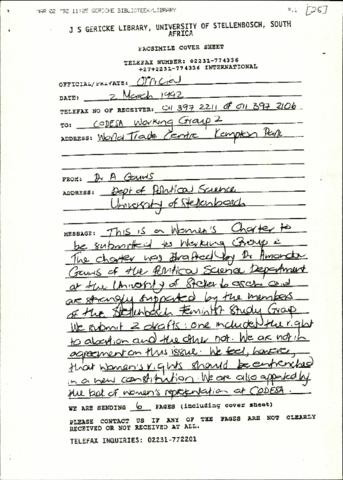 MAR 02 '92 11:25 GERICKE BIBLIOTEEK/LIBRARY P.1 [25]
J S GERICKE LIBRARY, UNIVERSITY OF STELLENBOSCH, SOUTH
AFRICA
FACSIMILE COVER SHEET
TELEFAX NUMBER: 02231-774336
+27+2231-774336 INTERNATIONAL
OFFICIAL/PRIVATE: Official
DATE: 2 March 1992
TELEFAX NO OF RECEIVER: 011 397 2211 of 011 397 2106
TO: CODESA Working Group 2
ADDRESS: World Trade Centre Kempton Park
FROM: Dr A Gouws
ADDRESS: Dept of Political Science
University of Stellenbosch
MESSAGE: This is a Women's Charter to
be submitted to Working Group 2
The charter was drafted by Dr Amanda
Gouws of the Political Science Department
at the University of Stellenbosch and
are strongly supported by the members
of the Stellenbosch Feminist Study Group
We submit 2 drafts: one includes the right
to abortion and the other not. We are not in
agreement on this issue. We feel, however,
that women's rights should be entrenched
in a new constitution. We are also appalled by
the lack of women's representation at CODESA.
WE ARE SENDING 6 PAGES (including cover sheet)
PLEASE CONTACT US IF ANY OF THE PAGES ARE NOT CLEARLY
RECEIVED OR NOT RECEIVED AT ALL.
TELEFAX INQUIRIES: 02231-772201